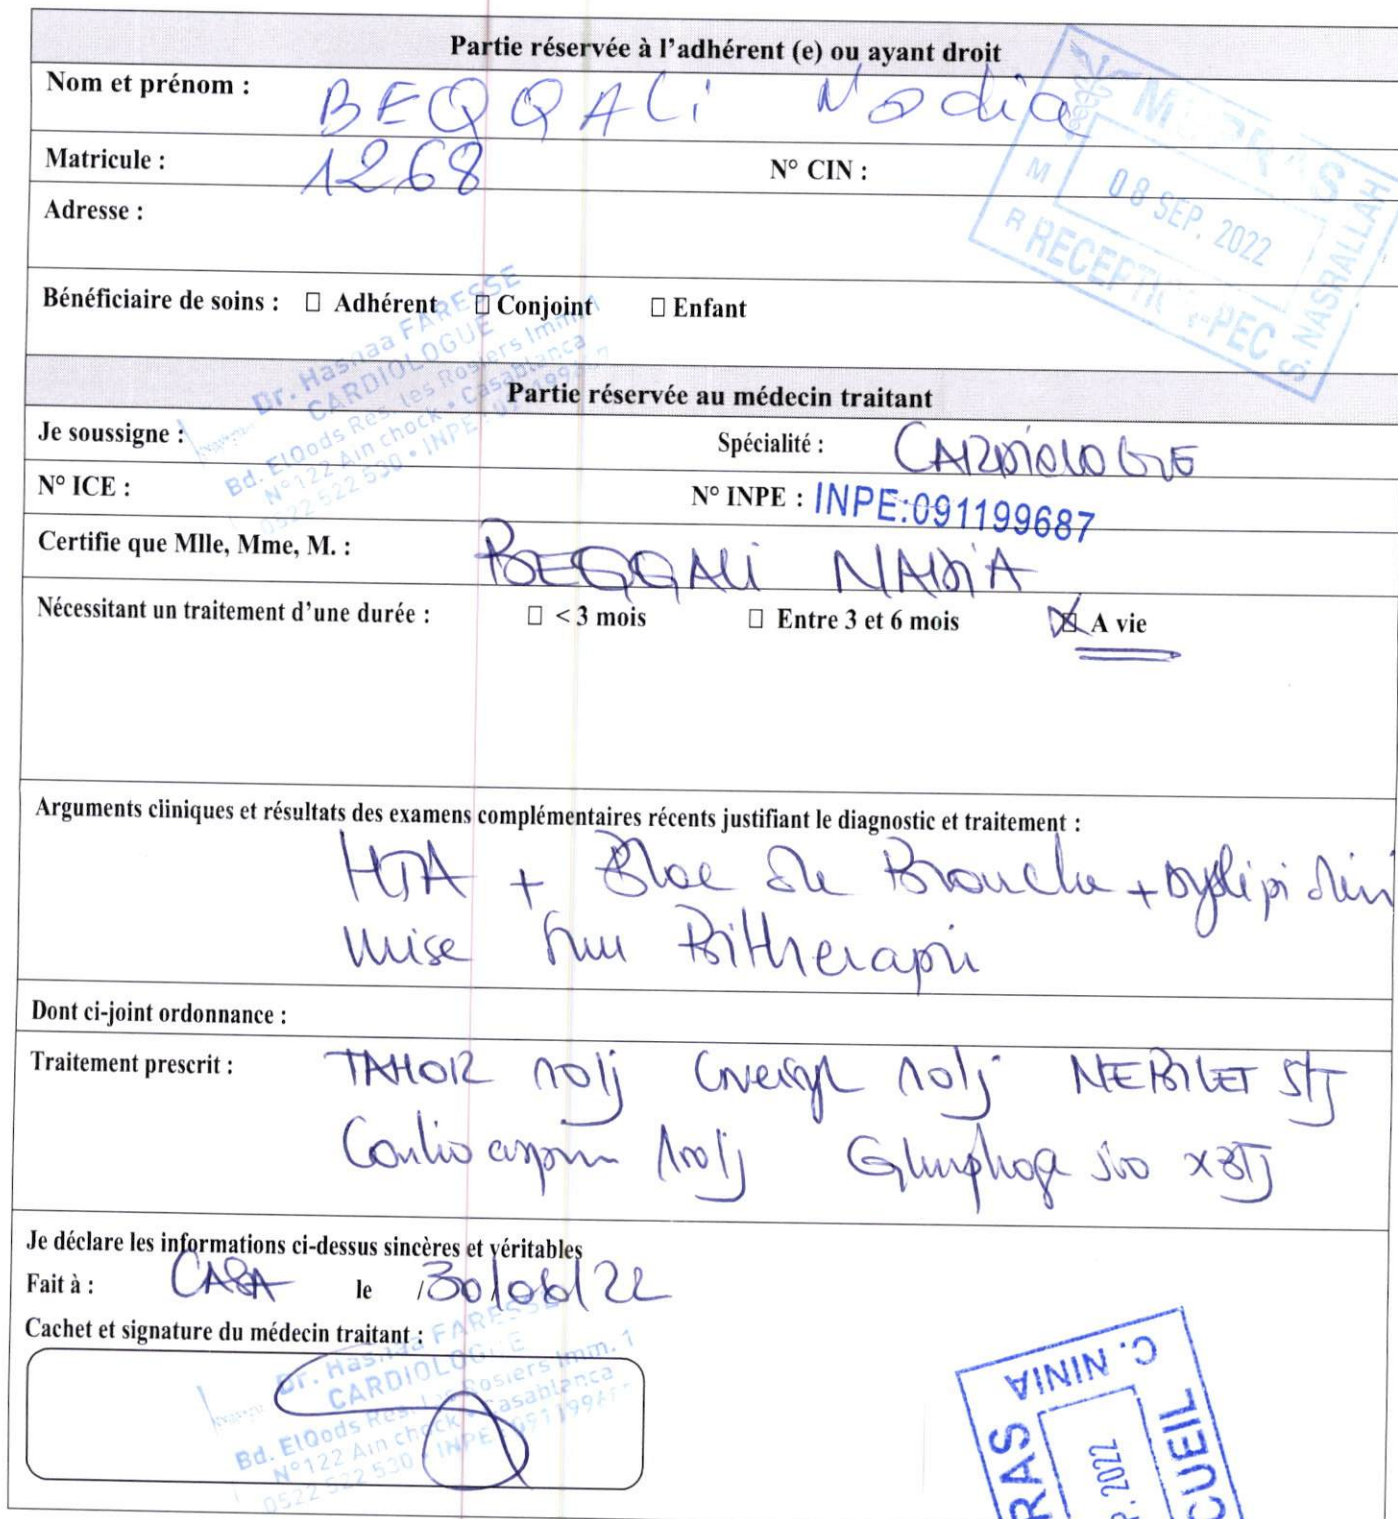 Partie réservée à l'adhérent (e) ou ayant droit
Nom et prénom : BEQQALi Nadia
Matricule : 1268 N° CIN :
Adresse :
MUPRAS
M 08 SEP. 2022
R RECEPTION PEC
S. NASRALLAH
Bénéficiaire de soins : □ Adhérent □ Conjoint □ Enfant
Dr. Hasnaa FARESSE
CARDIOLOGUE
Bd. ElQods Res. les Rosiers Imm. 1
N°122 Ain chock • Casablanca
0522 522 530 • INPE
Partie réservée au médecin traitant
Je soussigne : Spécialité : CARDIOLOGIE
N° ICE : N° INPE : INPE:091199687
Certifie que Mlle, Mme, M. : BEQQALi NADiA
Nécessitant un traitement d'une durée : □ < 3 mois □ Entre 3 et 6 mois ☒ A vie
Arguments cliniques et résultats des examens complémentaires récents justifiant le diagnostic et traitement :
HTA + Bloc de Branche +
mise
Dont ci-joint ordonnance :
Traitement prescrit : TAHOR 10/j 10/j NEBILET 5/j
100/j x3/j
Je déclare les informations ci-dessus sincères et véritables
Fait à : CASA le 22
Cachet et signature du médecin traitant :
Dr. Hasnaa FARESSE
CARDIOLOGUE
Bd. ElQods Res. les Rosiers Imm. 1
N°122 Ain chock • Casablanca
0522 522 530 • INPE
C. NINIA
RAS
2022
CUEIL